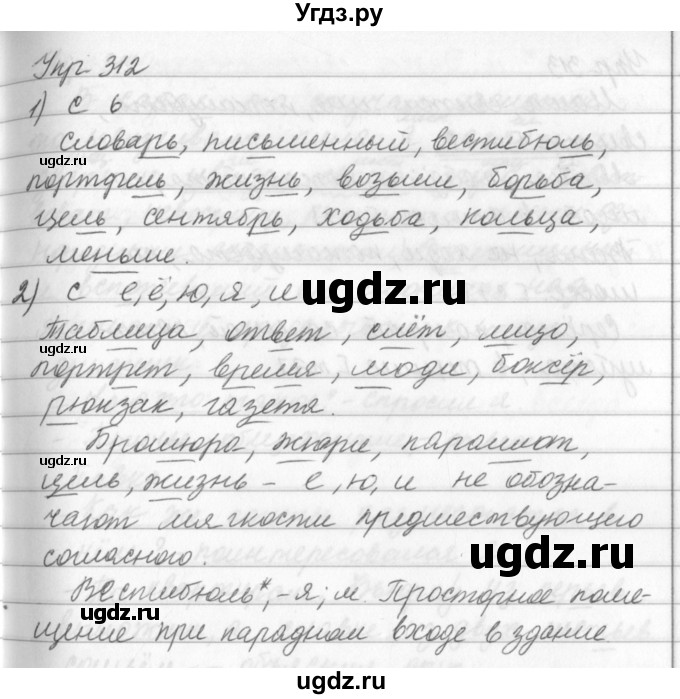 Угдз.ру
Упр 312
1) с ь
словарь, письменный, вестибюль,
портфель, жизнь, возьми, борьба,
цель, сентябрь, ходьба, кольца,
меньше.
2) с е, ё, ю, я, и
Таблица, ответ, слёт, лицо,
портрет, время, люди, боксёр,
рюкзак, газета.
Брошюра, жюри, парашют,
цель, жизнь - е, ю, и не обозна-
чают мягкости предшествующего
согласного.
Вестибюль*, -я; м Просторное поме-
щение при парадном входе в здание
ugdz.ru
ugdz.ru
ugdz.ru
ugdz.ru
ugdz.ru
ugdz.ru
ugdz.ru
ugdz.ru
ugdz.ru